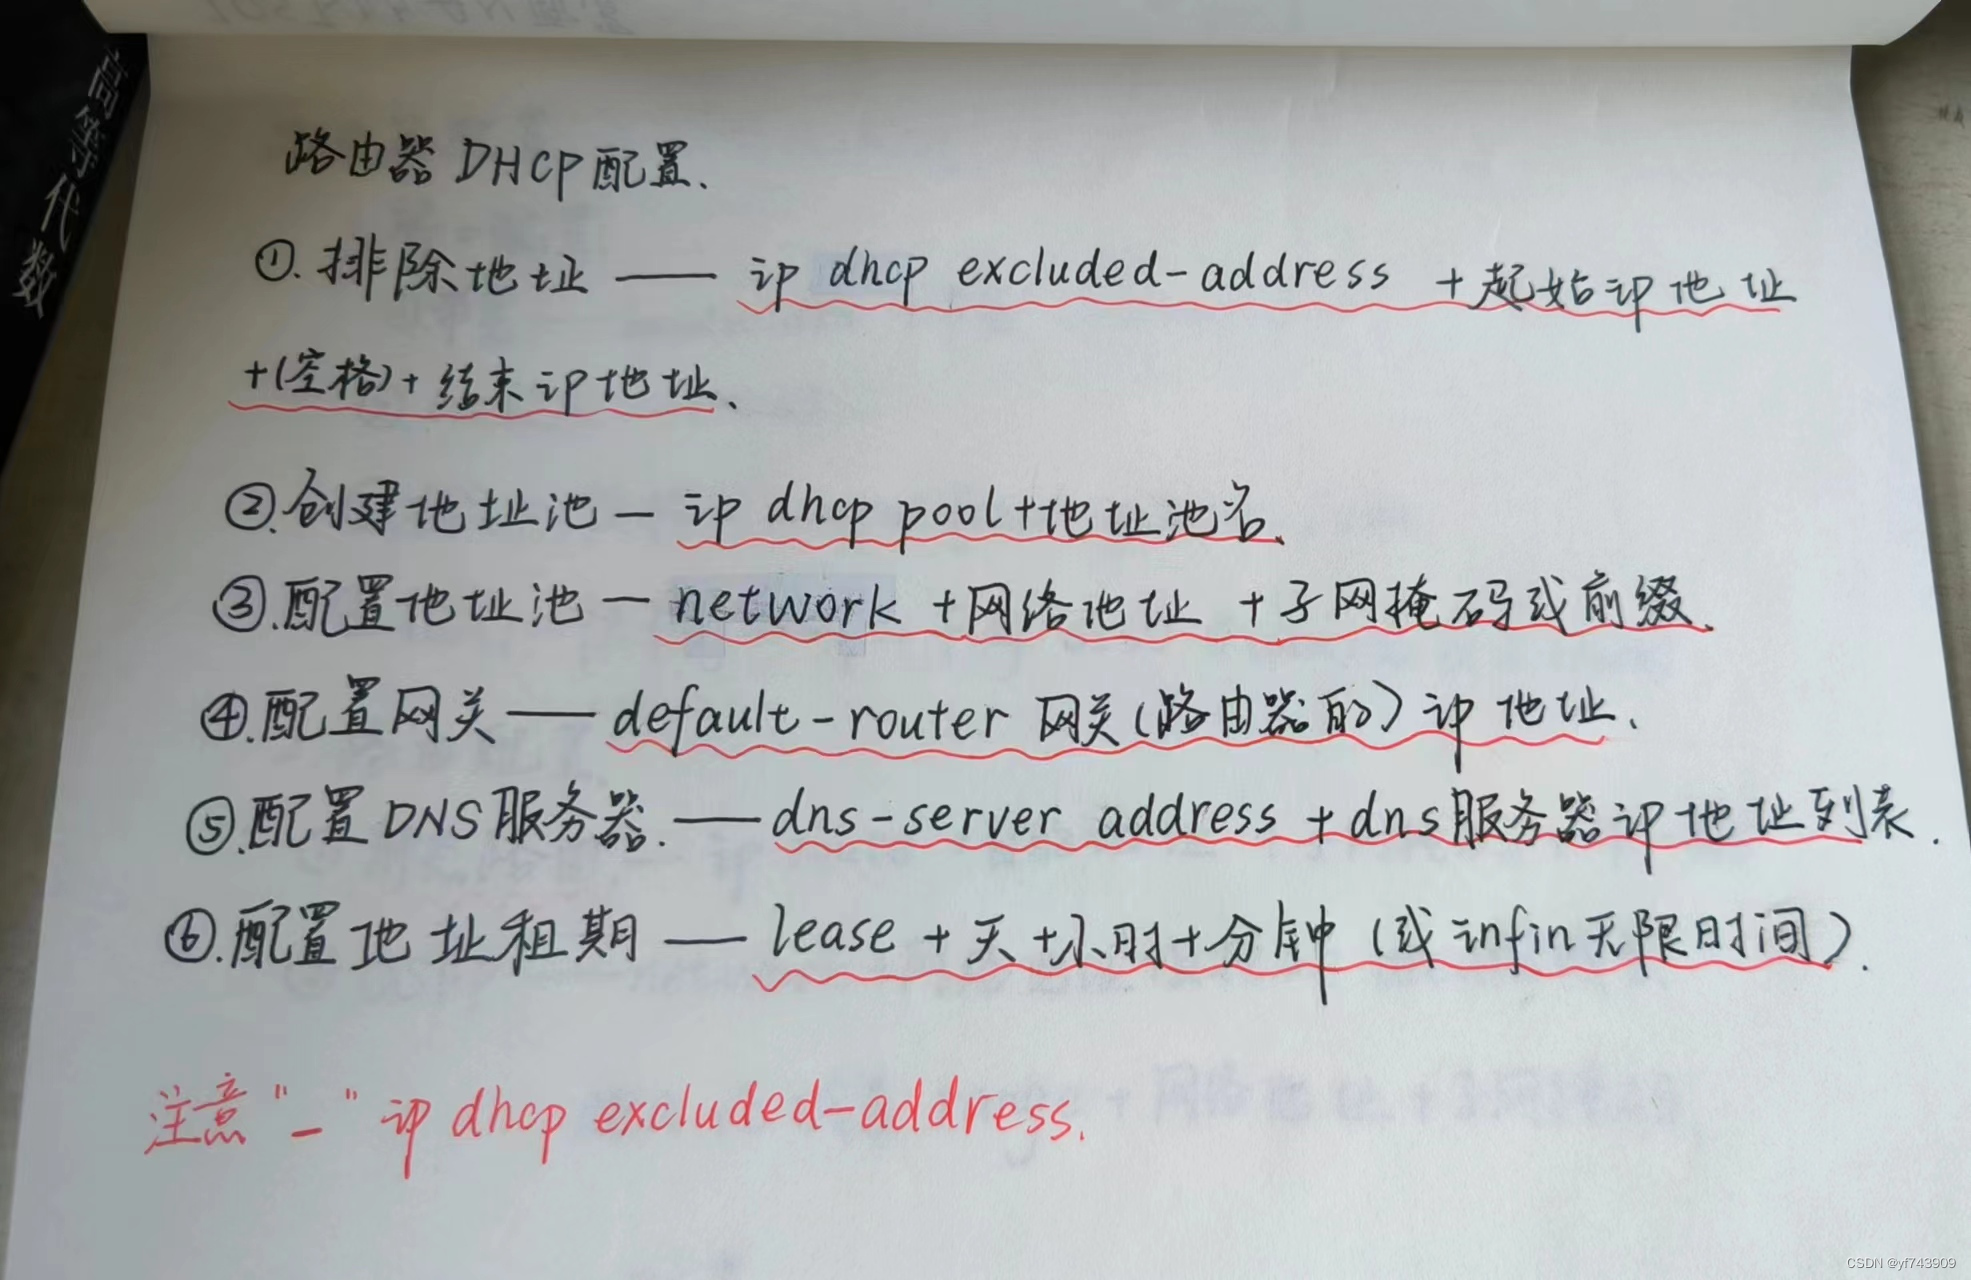 高等代数
路由器 DHCP 配置.
①. 排除地址 —— ip dhcp excluded-address +起始ip地址
+(空格)+ 结束ip地址.
②.创建地址池 — ip dhcp pool+地址池名.
③.配置地址池 — network +网络地址 +子网掩码或前缀.
④.配置网关 —— default-router 网关(路由器的) ip 地址.
⑤.配置DNS服务器. —— dns-server address +dns服务器ip地址列表.
⑥.配置地址租期 —— lease + 天 +小时+分钟 (或infin无限时间).
注意"-" ip dhcp excluded-address.
CSDN @yf743909